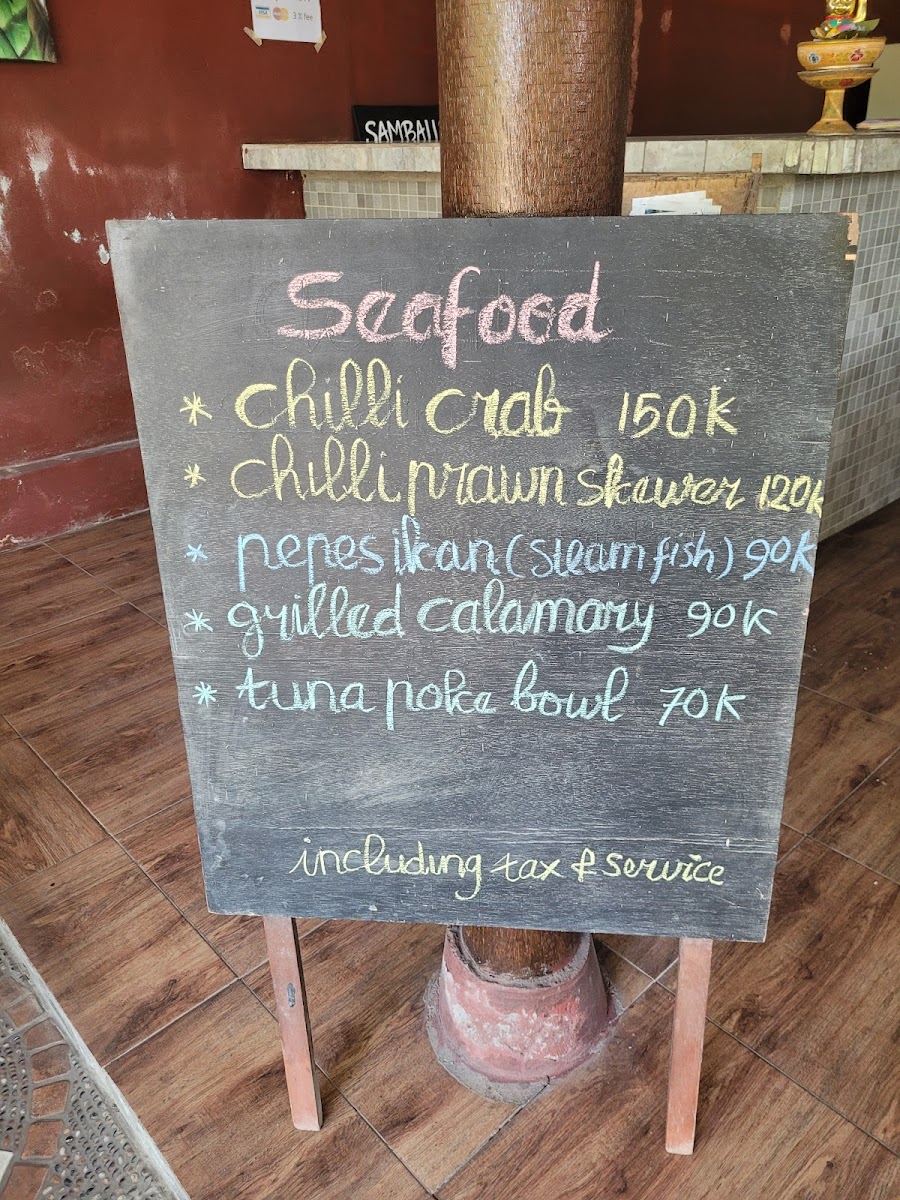 VISA MasterCard 3% fee
SAMBAL
Seafood
* chilli crab 150K
* chilli prawn skewer 120K
* pepes ikan (steam fish) 90K
* grilled calamary 90K
* tuna poke bowl 70K
including tax & service